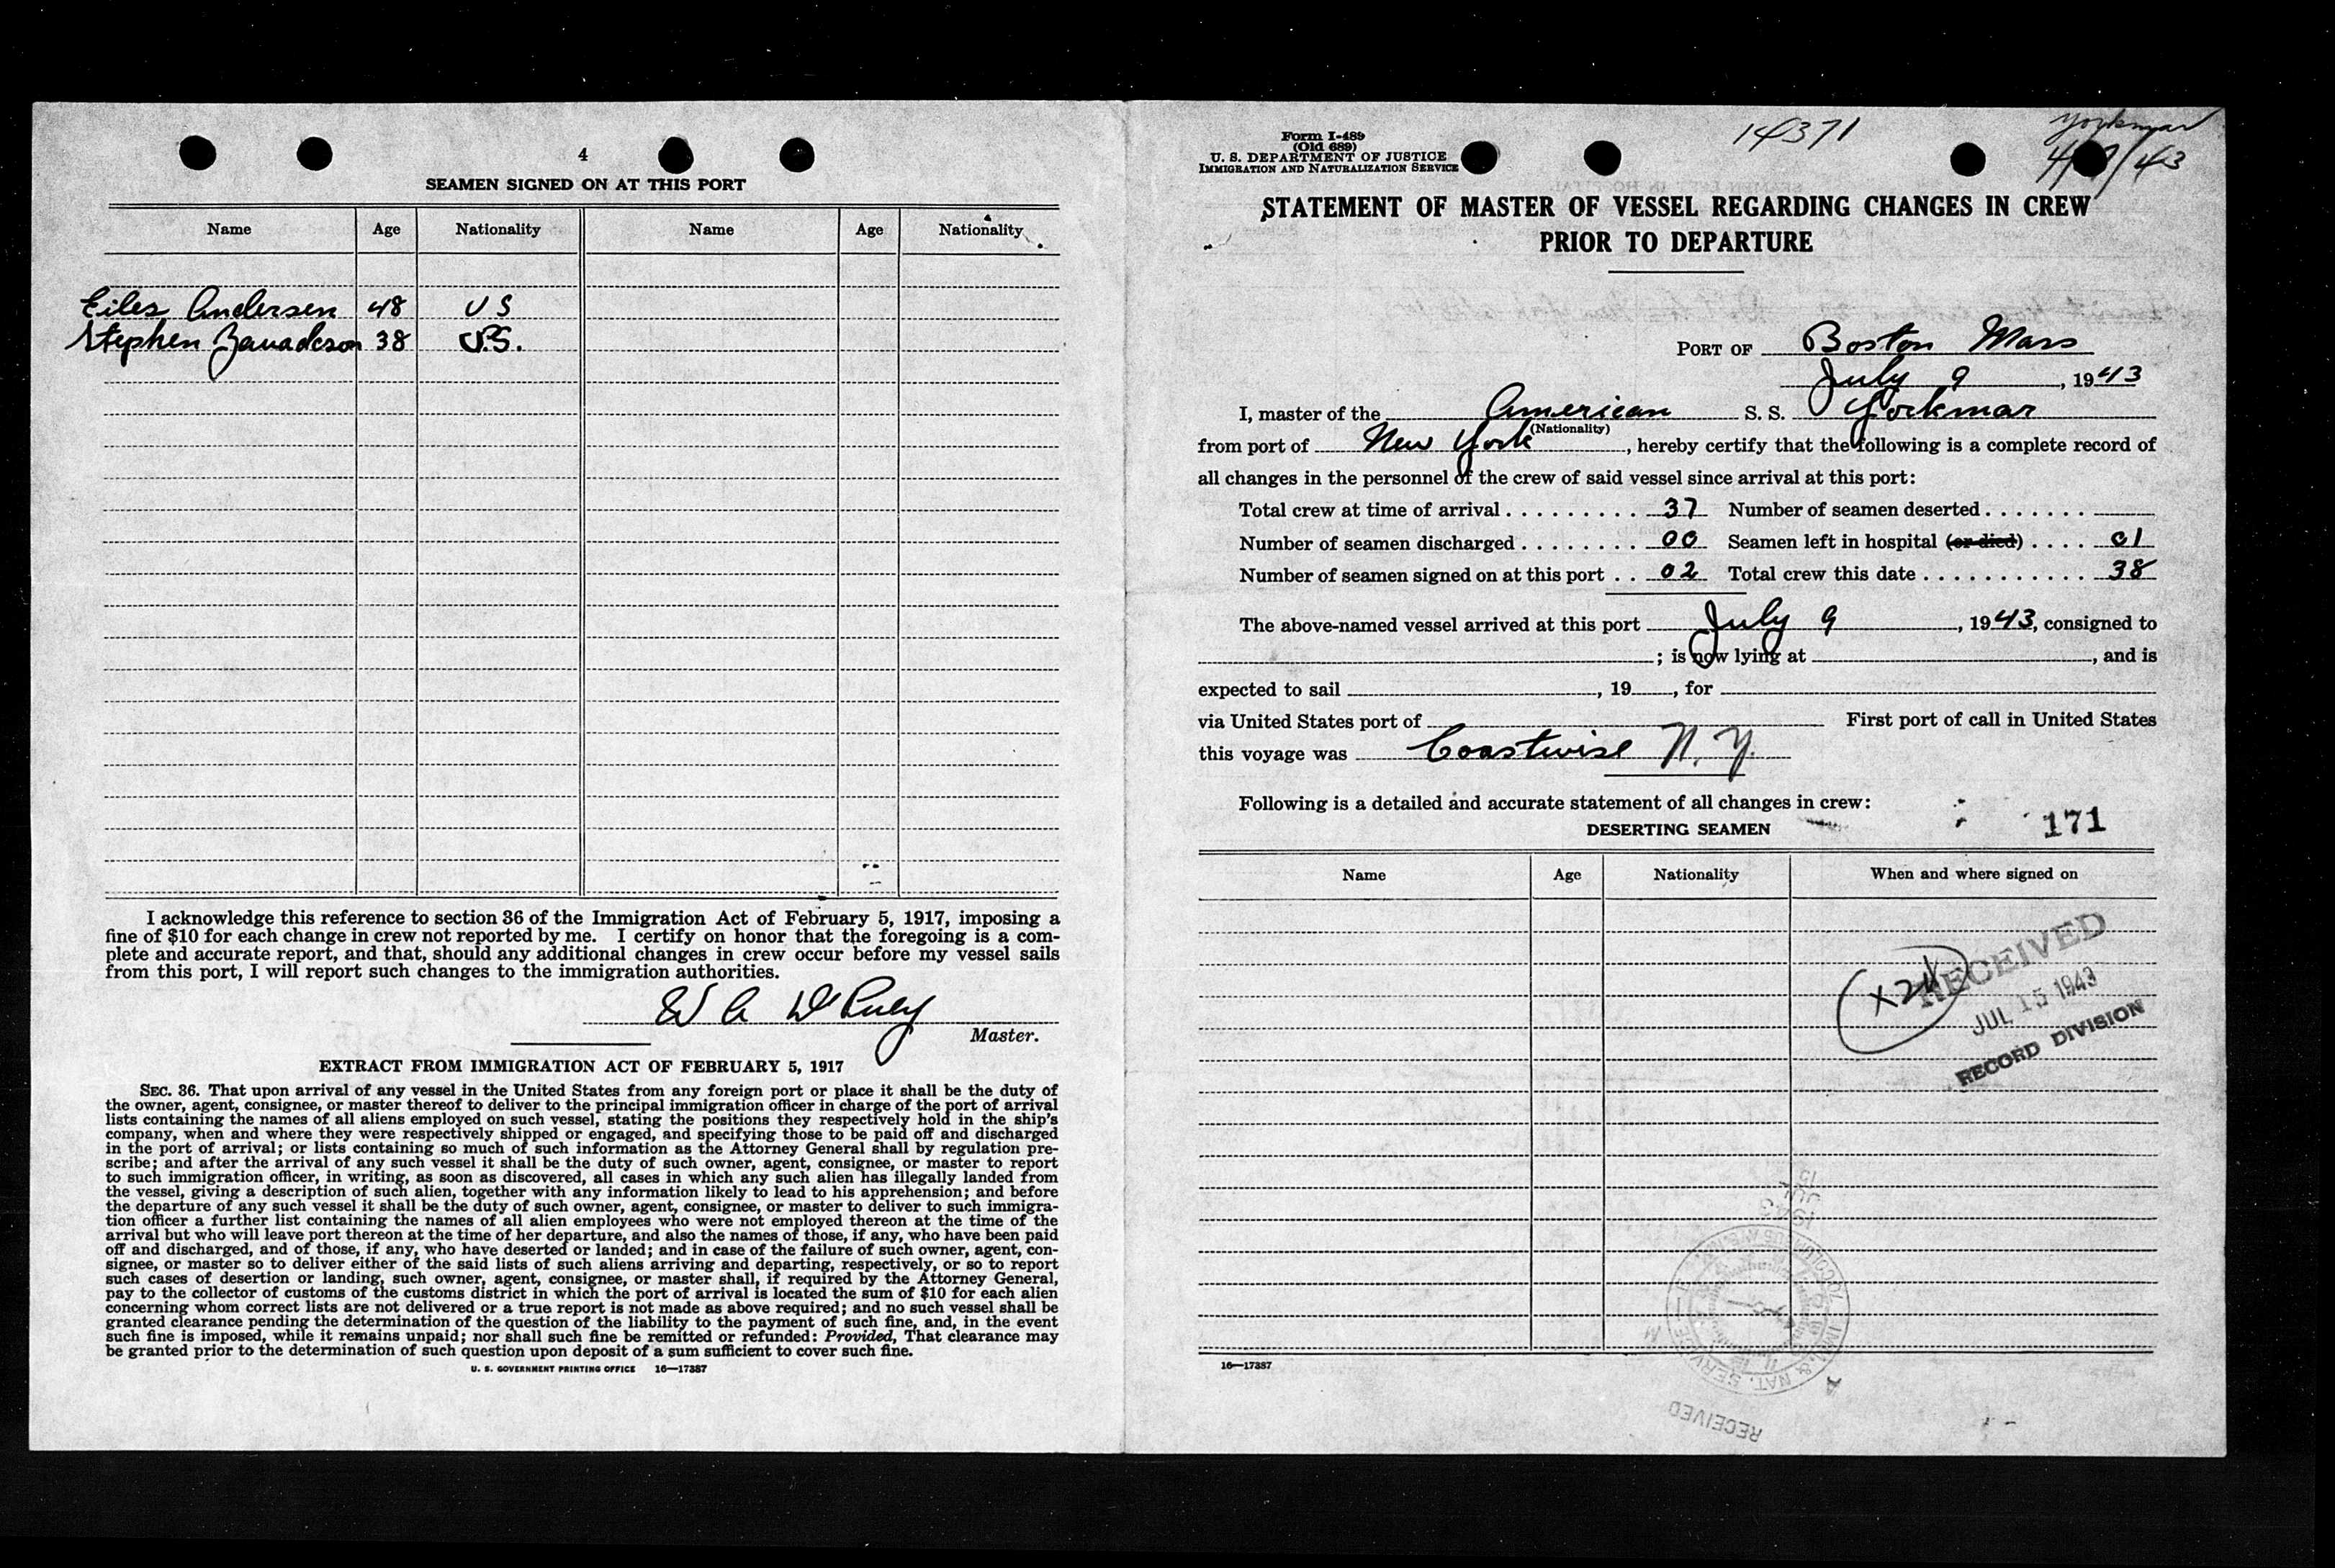 4
SEAMEN SIGNED ON AT THIS PORT
Name Age Nationality Name Age Nationality
Eiler Andersen 48 U S
Stephen 38 U.S.
I acknowledge this reference to section 36 of the Immigration Act of February 5, 1917, imposing a
fine of $10 for each change in crew not reported by me. I certify on honor that the foregoing is a com-
plete and accurate report, and that, should any additional changes in crew occur before my vessel sails
from this port, I will report such changes to the immigration authorities.
W A
Master.
EXTRACT FROM IMMIGRATION ACT OF FEBRUARY 5, 1917
SEC. 36. That upon arrival of any vessel in the United States from any foreign port or place it shall be the duty of
the owner, agent, consignee, or master thereof to deliver to the principal immigration officer in charge of the port of arrival
lists containing the names of all aliens employed on such vessel, stating the positions they respectively hold in the ship's
company, when and where they were respectively shipped or engaged, and specifying those to be paid off and discharged
in the port of arrival; or lists containing so much of such information as the Attorney General shall by regulation pre-
scribe; and after the arrival of any such vessel it shall be the duty of such owner, agent, consignee, or master to report
to such immigration officer, in writing, as soon as discovered, all cases in which any such alien has illegally landed from
the vessel, giving a description of such alien, together with any information likely to lead to his apprehension; and before
the departure of any such vessel it shall be the duty of such owner, agent, consignee, or master to deliver to such immigra-
tion officer a further list containing the names of all alien employees who were not employed thereon at the time of the
arrival but who will leave port thereon at the time of her departure, and also the names of those, if any, who have been paid
off and discharged, and of those, if any, who have deserted or landed; and in case of the failure of such owner, agent, con-
signee, or master so to deliver either of the said lists of such aliens arriving and departing, respectively, or so to report
such cases of desertion or landing, such owner, agent, consignee, or master shall, if required by the Attorney General,
pay to the collector of customs of the customs district in which the port of arrival is located the sum of $10 for each alien
concerning whom correct lists are not delivered or a true report is not made as above required; and no such vessel shall be
granted clearance pending the determination of the question of the liability to the payment of such fine, and, in the event
such fine is imposed, while it remains unpaid; nor shall such fine be remitted or refunded: Provided, That clearance may
be granted prior to the determination of such question upon deposit of a sum sufficient to cover such fine.
U. S. GOVERNMENT PRINTING OFFICE 16—17387
Form I-489
(Old 689)
U. S. DEPARTMENT OF JUSTICE
IMMIGRATION AND NATURALIZATION SERVICE
14371
Yorkmar
STATEMENT OF MASTER OF VESSEL REGARDING CHANGES IN CREW
PRIOR TO DEPARTURE
PORT OF Boston Mass
July 9, 1943
I, master of the American S. S. Yorkmar
(Nationality)
from port of New York, hereby certify that the following is a complete record of
all changes in the personnel of the crew of said vessel since arrival at this port:
Total crew at time of arrival . . . . . . . . . 37 Number of seamen deserted . . . . . . .
Number of seamen discharged . . . . . . . . 00 Seamen left in hospital (or died) . . . . 01
Number of seamen signed on at this port . . 02 Total crew this date . . . . . . . . . . . 38
The above-named vessel arrived at this port July 9, 1943, consigned to
; is now lying at , and is
expected to sail , 19 , for
via United States port of First port of call in United States
this voyage was Coastwise N. Y.
Following is a detailed and accurate statement of all changes in crew:
DESERTING SEAMEN
171
Name Age Nationality When and where signed on
RECEIVED
JUL 15 1943
RECORD DIVISION
16—17387
RECEIVED